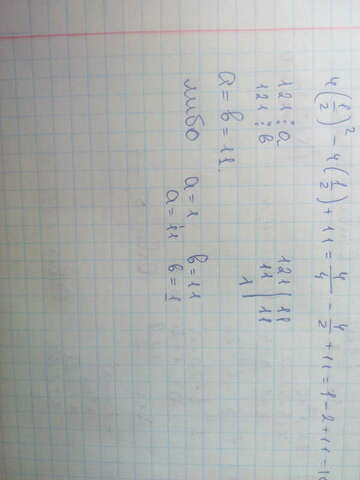 4(1/2)² - 4(1/2) + 11 = 4/4 - 4/2 + 11 = 1 - 2 + 11 = 10
121 ⋮ a
121 ⋮ b
121 | 11
11 | 11
1
a = b = 11.
либо a = 1 b = 11
a = 11 b = 1